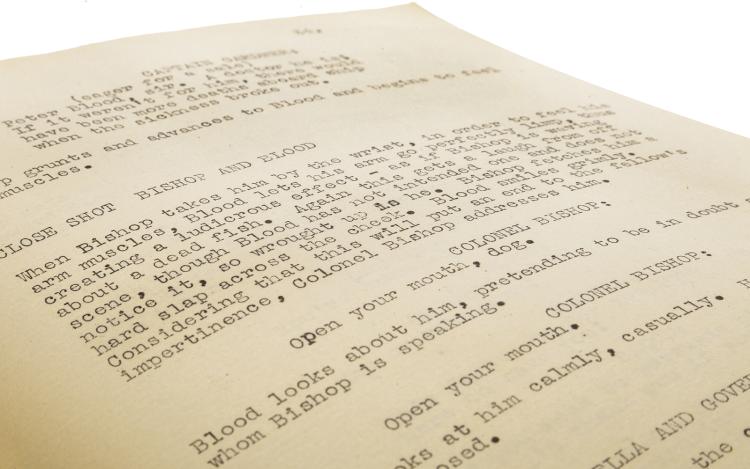 CAPTAIN GARDNER:
(eager for a sale)
Peter Blood, sir. A doctor he is;
If it weren't for him, there would
have been more deaths aboard ship
when the sickness broke out.
p grunts and advances to Blood and begins to feel
muscles.
CLOSE SHOT BISHOP AND BLOOD
When Bishop takes him by the wrist, in order to feel his
arm muscles, Blood lets his arm go perfectly limp, thus
creating a ludicrous effect - as if Bishop is waving
about a dead fish. Again this gets a laugh from off
scene, though Blood has not intended one and does not
notice it, so wrought up is he. Bishop fetches him a
hard slap across the cheek. Blood smiles grimly.
Considering that this will put an end to the fellow's
impertinence, Colonel Bishop addresses him.
COLONEL BISHOP:
Open your mouth, dog.
Blood looks about him, pretending to be in doubt
whom Bishop is speaking.
COLONEL BISHOP:
Open your mouth.
oks at him calmly, casually.
osed.
ELLA AND GOVE
the